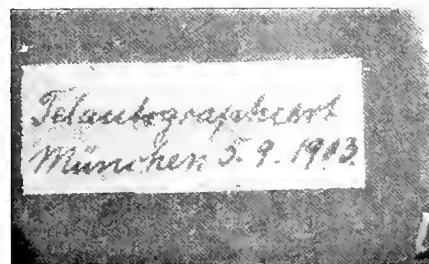 Telautographiert
München 5. 9. 1903.